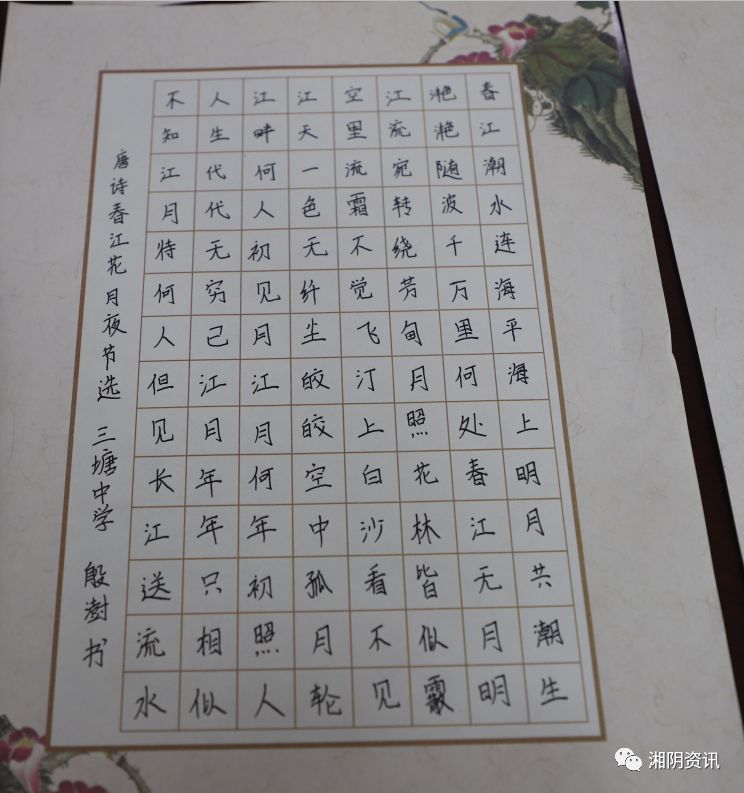 春江潮水连海平海上明月共潮生
滟滟随波千万里何处春江无月明
江流宛转绕芳甸月照花林皆似霰
空里流霜不觉飞汀上白沙看不见
江天一色无纤尘皎皎空中孤月轮
江畔何人初见月江月何年初照人
人生代代无穷己江月年年只相似
不知江月特何人但见长江送流水
唐诗春江花月夜节选 三塘中学 殷澍书
湘阴资讯